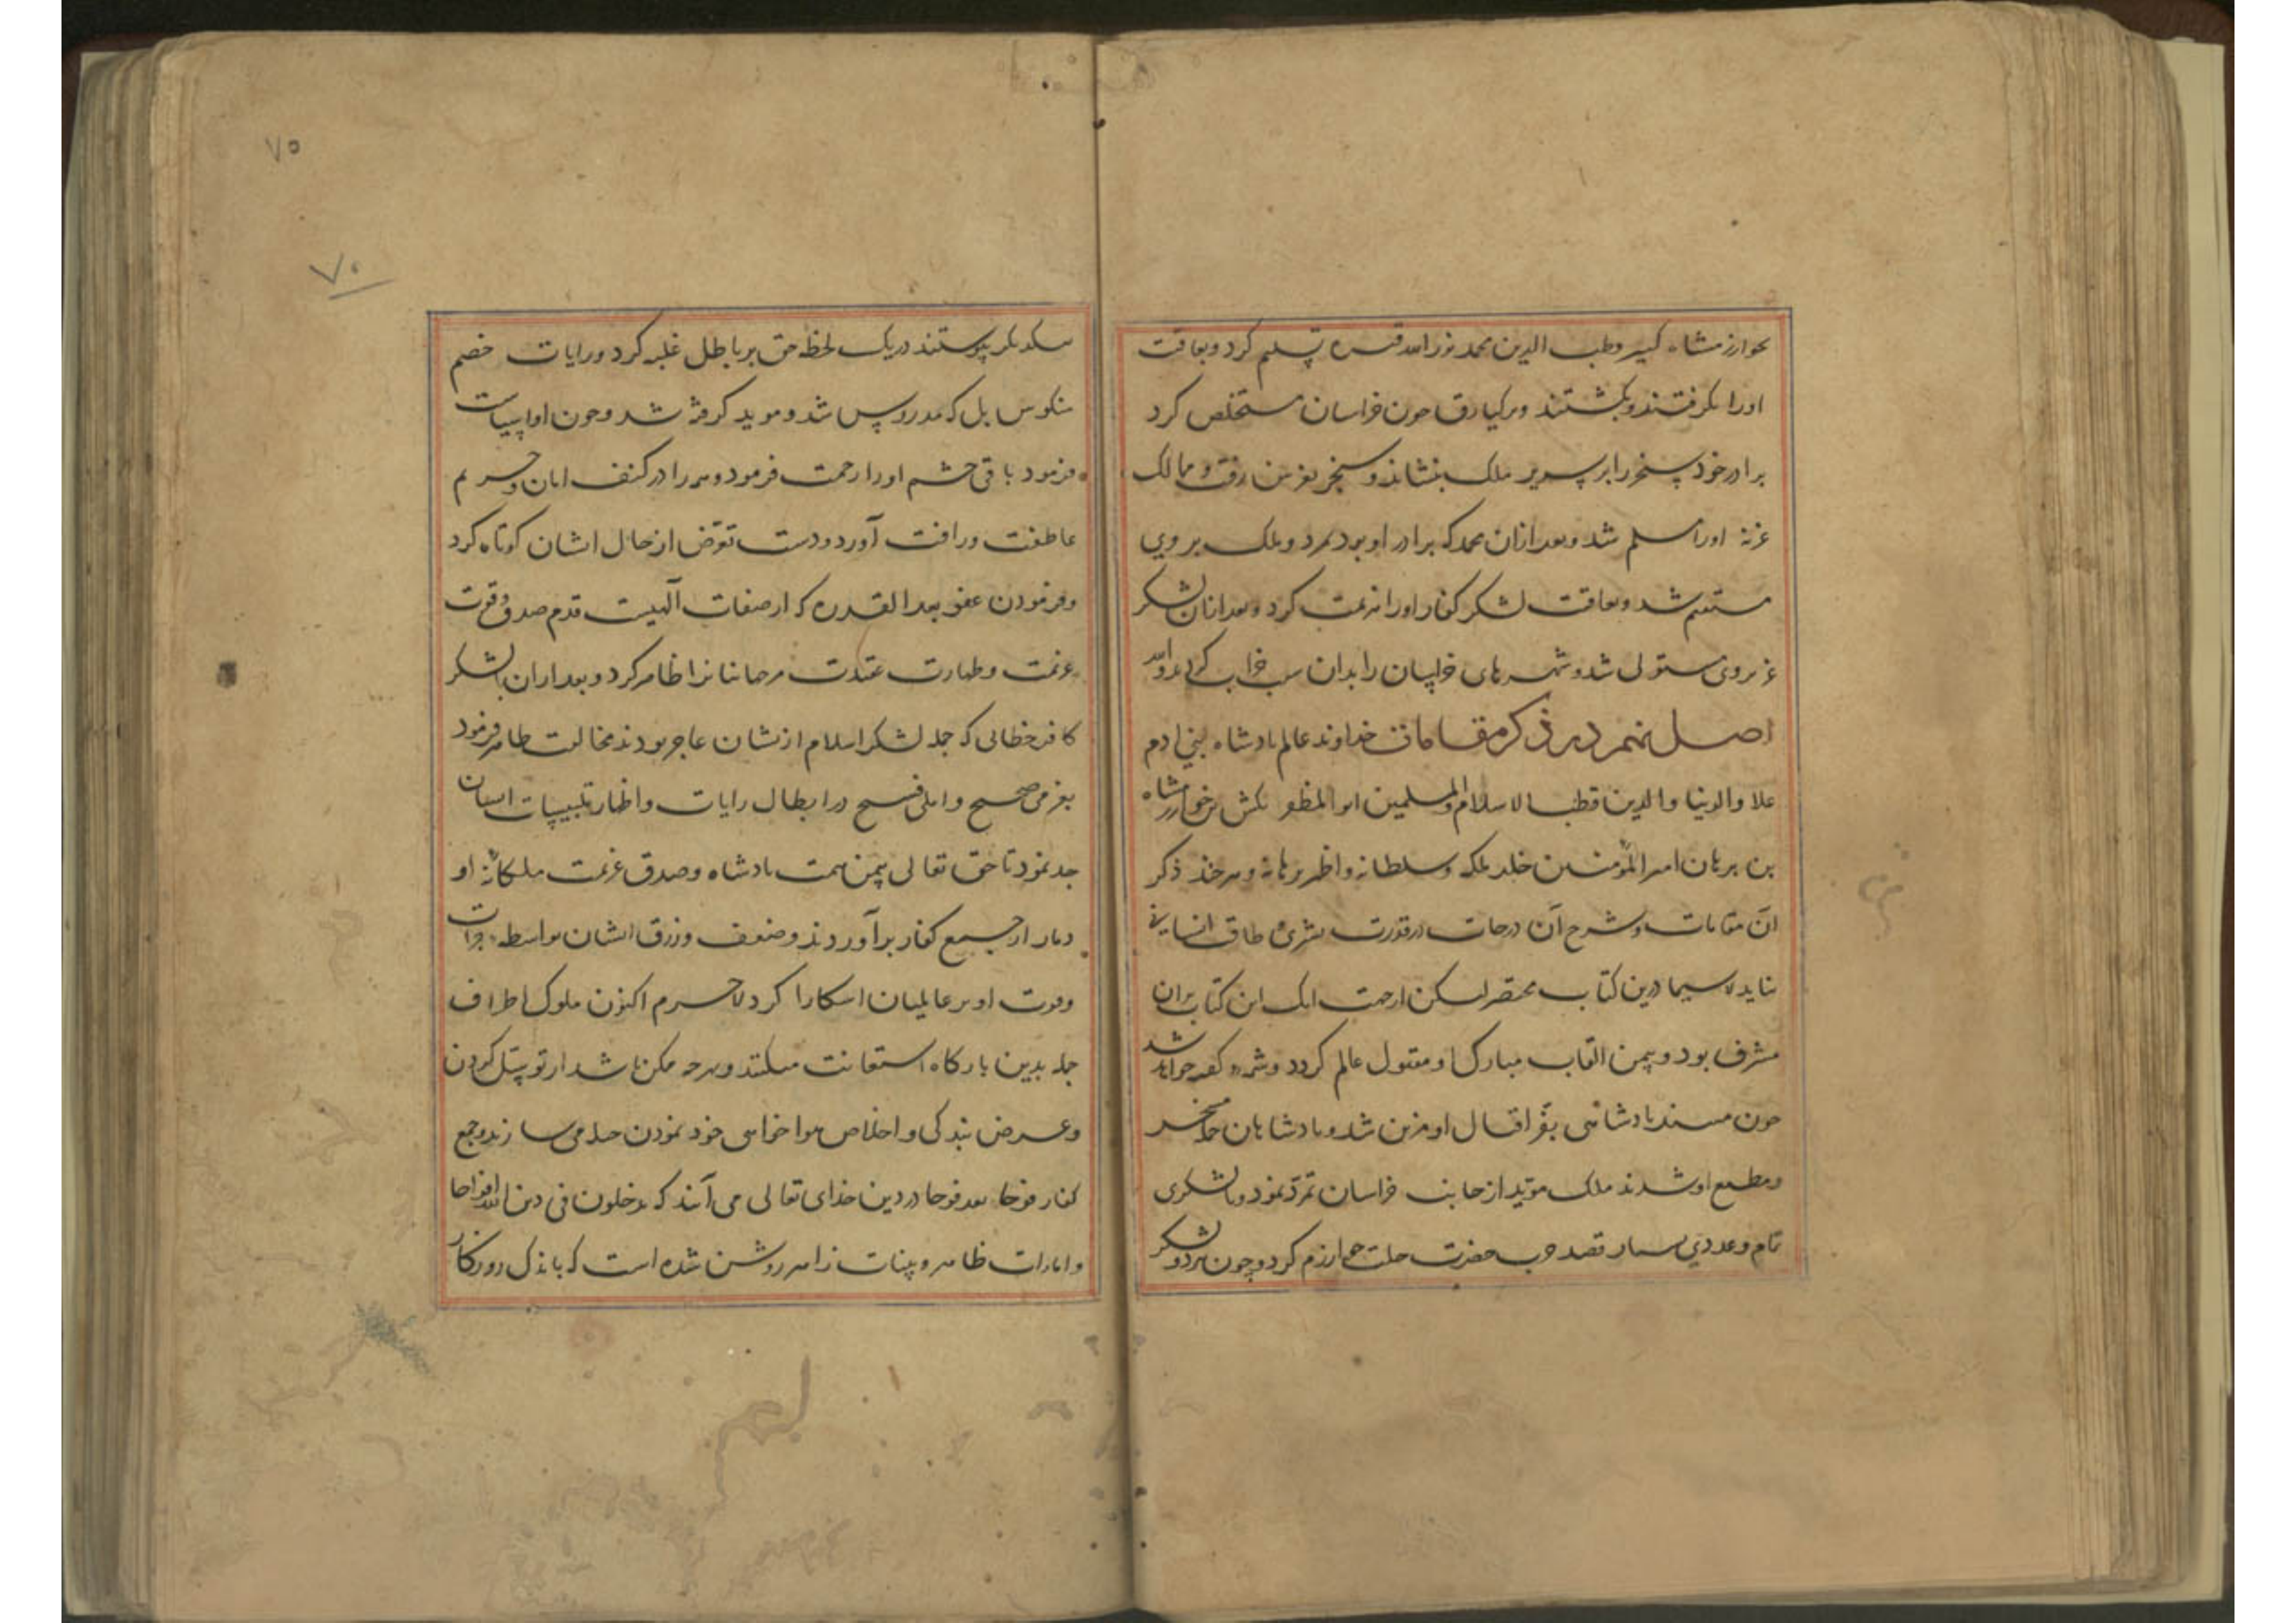 خوارزمشاه کبیر قطب الدین محمد نور الله قبره تسلیم کرد و بعاقبت
اورا بکرفتند و بکشتند و برکیارق چون خراسان مستخلص کرد
برادر خود سنجر را بر سریر ملک بنشاند و سنجر بغزنین رفت و ممالک
غزنه اورا مسلم شد و بعد ازان محمد که برادر او بود بمرد و ملک بر وی
مستقیم شد و بعاقبت لشکر کفار اورا هزیمت کرد و بعد ازان لشکر
غز بر وی مستولی شد و شهرهای خراسان را بدان سبب خراب کرد
اصل نهم در ذکر مقامات خداوند عالم بادشاه بنی ادم
علاء والدنیا والدین قطب الاسلام والمسلمین ابو المظفر تکش بن خوارزمشاه
بن برهان امیر المؤمنین خلد ملکه وسلطانه واظهر برهانه و هرچند ذکر
آن مقامات و شرح آن درجات در قدرت بشری و طاقت انسانی
نیاید لاسیما درین کتاب مختصر لیکن از جهت انک این کتاب بدان
مشرف بود و بیمن القاب مبارک او مقبول عالم کردد و شمه کفته خواهد شد
چون مسند بادشاهی بفر اقبال او مزین شد و بادشاهان جمله مسخر
ومطیع او شدند ملک مؤید از جانب خراسان تمرد نمود و با لشکری
تام و عددی بسیار قصد حرب حضرت جلت خوارزم کرد و چون هر دو لشکر
۷۵
۷۰
بیکدیکر پیوستند در یک لحظه حق بر باطل غلبه کرد و رایات خصم
منکوس بل که مدروس شد و موید کرفته شد و چون اورا سیاست
فرمود باقی حشم اورا رحمت فرمود و همه را در کنف امان و حریم
عاطفت و رافت آورد و دست تعرض از حال ایشان کوتاه کرد
و فرمودن عفو بعد القدره که از صفات آلهیست قدم صدق و قوت
عزیمت و طهارت عقیدت مر جهانیانرا ظاهر کرد و بعد ازان با لشکر
کافر خطائی که جمله لشکر اسلام ازیشان عاجز بودند مخالفت ظاهر فرمود
بعزمی صحیح و املی فسیح در ابطال رایات و اظهار تلبیسات ایشان
جد نمود تا حق تعالی بیمن همت بادشاه و صدق عزیمت ملکانه او
دمار از جمیع کفار برآورد و ضعف و زرق ایشان بواسطه جرات
وقوت او بر عالمیان اشکارا کرد لاجرم اکنون ملوک اطراف
جمله بدین بارکاه استعانت میکنند و هرچه ممکن باشد از توسل کردن
و عرض بندکی و اخلاص هواخواهی خود نمودن می سازند و جمع
کفار فوجا بعد فوجا در دین خدای تعالی می آیند که یدخلون فی دین الله افواجا
و امارات ظاهر و بینات زاهر روشن شده است که باندک روزکار